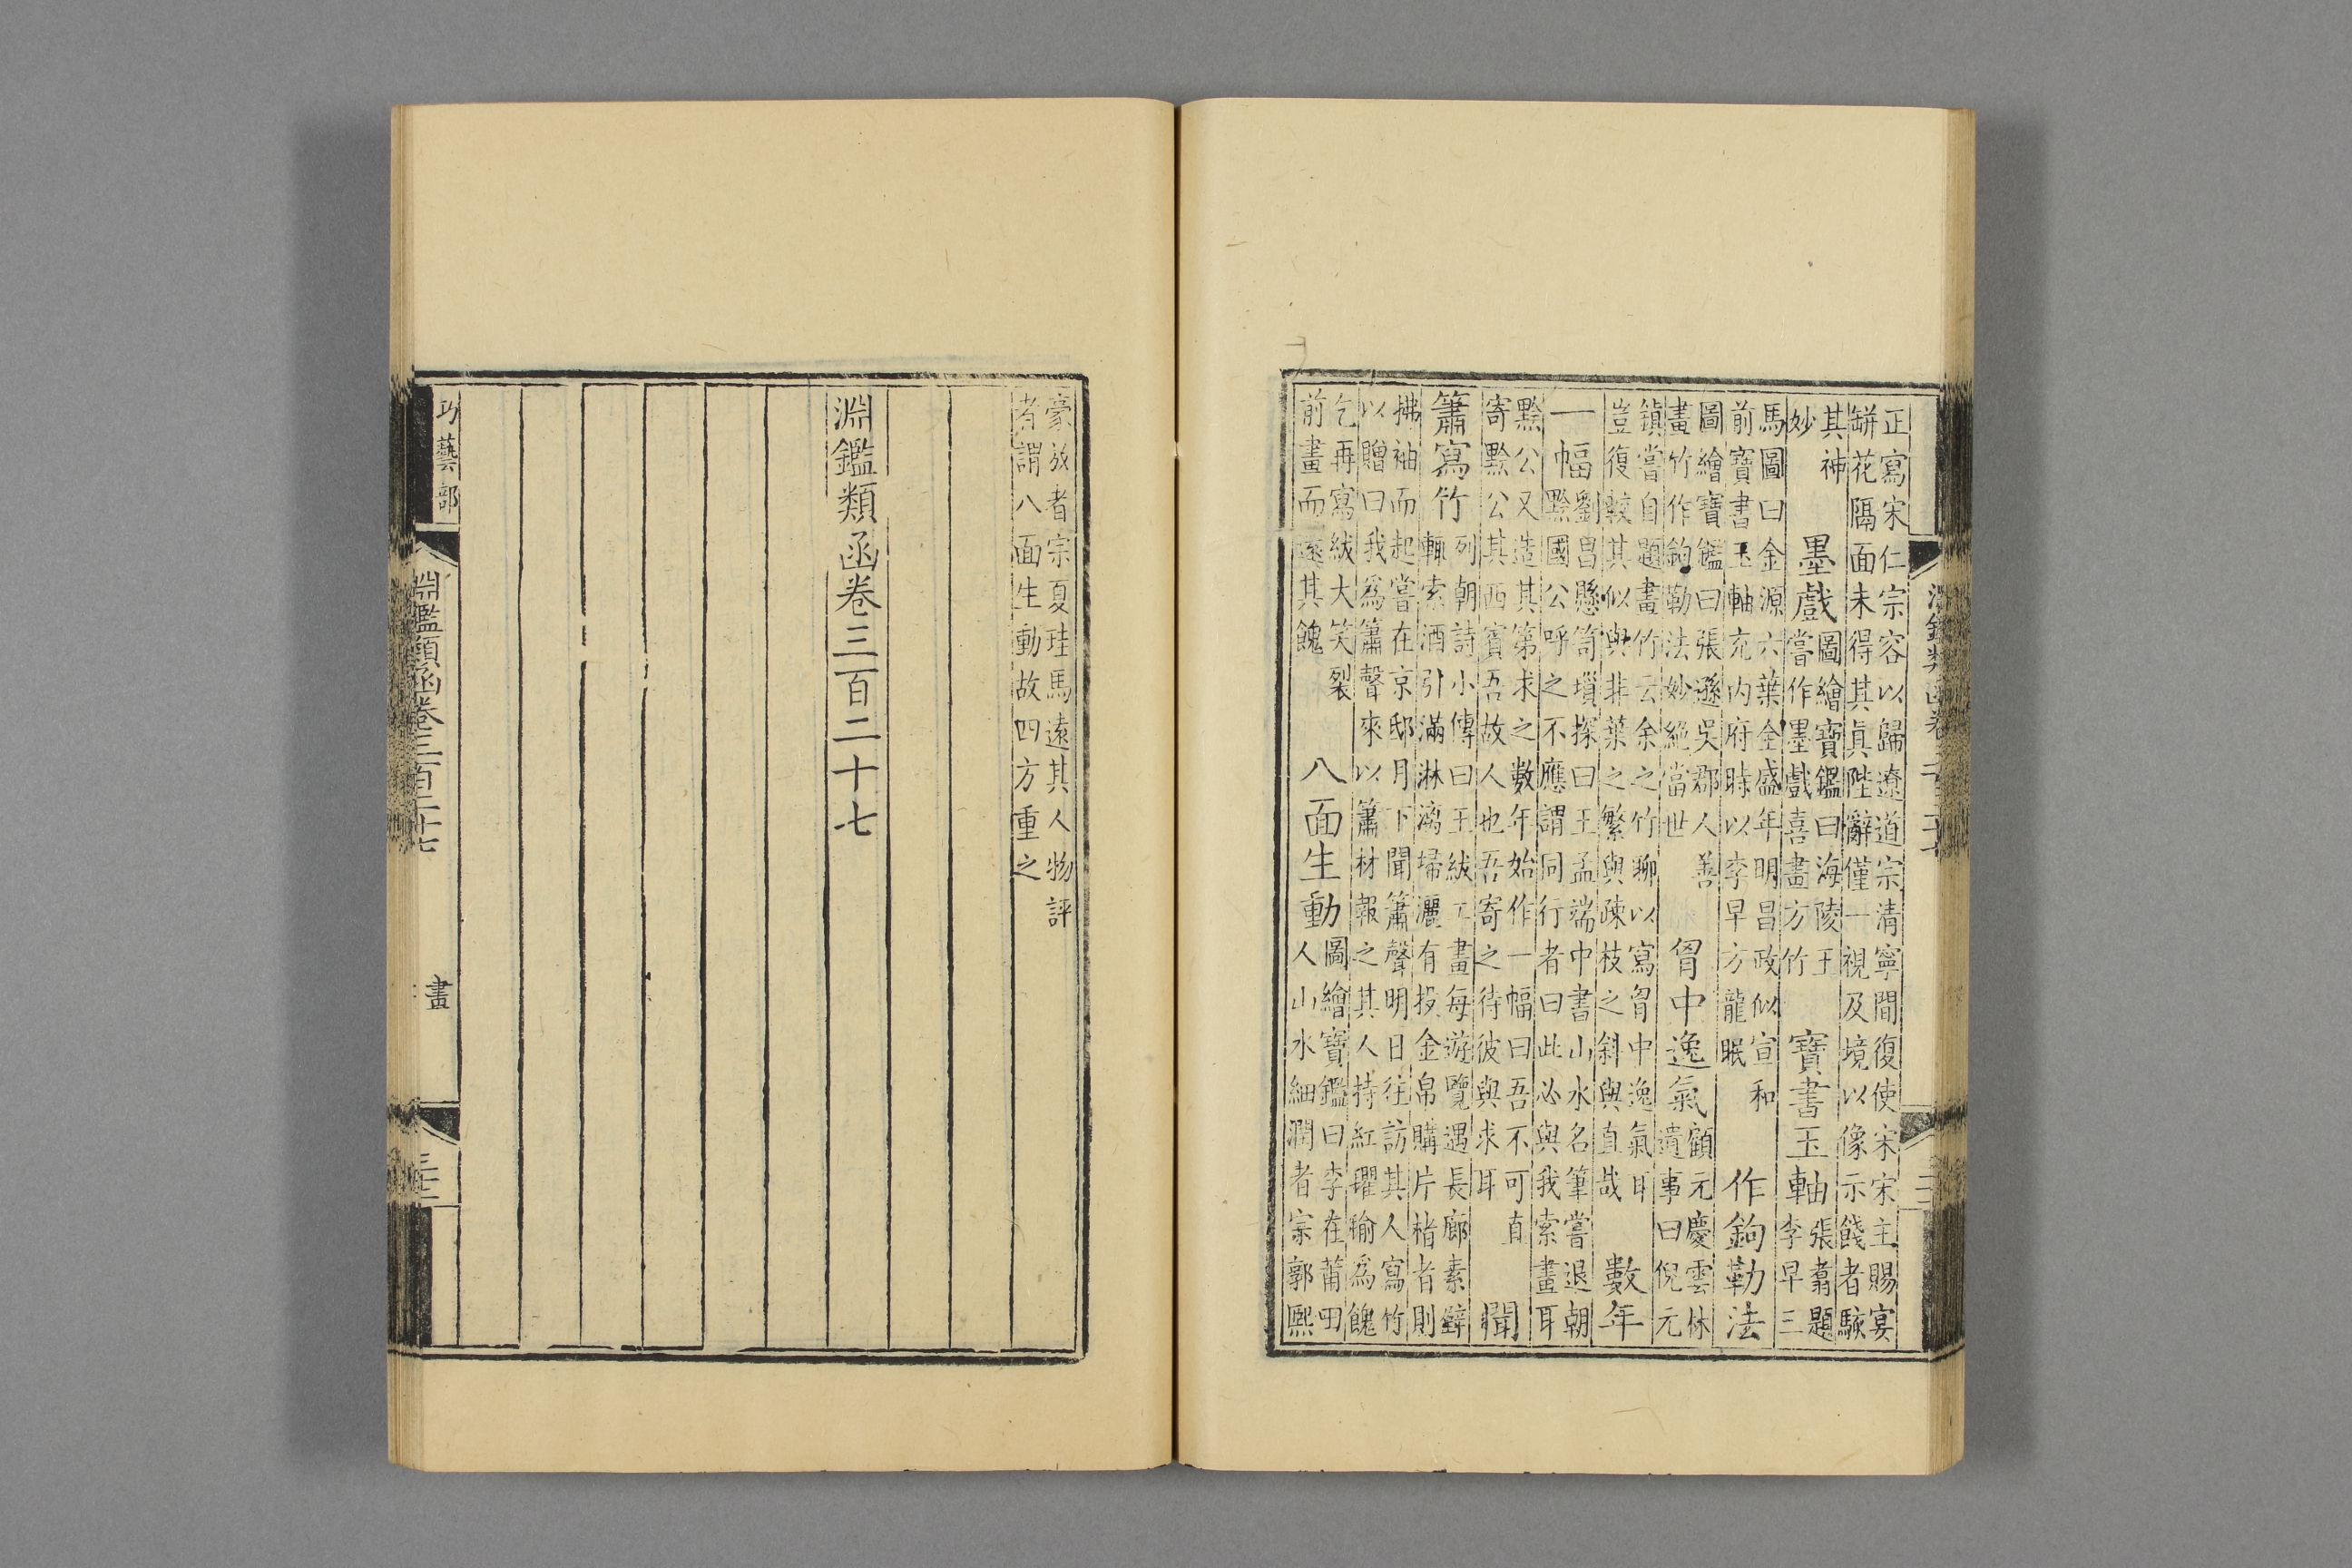 正寫宋仁宗容以歸遼道宗清寧間復使宋宋主賜宴
缾花隔面未得其眞陛辭僅一視及境以像示餞者駭
其神
妙
墨戲
圖繪寶鑑曰海陵王
嘗作墨戲喜畫方竹
寶書玉軸
張翥題
李早三
馬圖曰金源六葉全盛年明昌政似宣和
前寶書玉軸充內府時以李早方龍眠
作鉤勒法
圖繪寶鑑曰張遜吳郡人善
畫竹作鉤勒法妙絕當世
胷中逸氣
顧元慶雲林
遺事曰倪元
鎮嘗自題畫竹云余之竹聊以寫胷中逸氣耳
豈復較其似與非葉之繁與疎枝之斜與直哉
數年
一幅
劉昌懸笥瑣探曰王孟端中書山水名筆嘗退朝
黔國公呼之不應謂同行者曰此必與我索畫耳
黔公又造其第求之數年始作一幅曰吾不可直
寄黔公其西賓吾故人也吾寄之待彼與求耳
聞
簫寫竹
列朝詩小傳曰王紱工畫每遊覽遇長廊素壁
輒索酒引滿淋漓埽灑有投金帛購片楮者則
拂袖而起嘗在京邸月下聞簫聲明日往訪其人寫竹
以贈曰我爲簫聲來以簫材報之其人持紅氍毹爲餽
乞再寫紱大笑裂
前畫而還其餽
八面生動
圖繪寶鑑曰李在莆田
人山水細潤者宗郭熙
豪放者宗夏珪馬遠其人物評
者謂八面生動故四方重之
淵鑑類函卷三百二十七
巧藝部
淵鑑類函卷三百二十七
畫